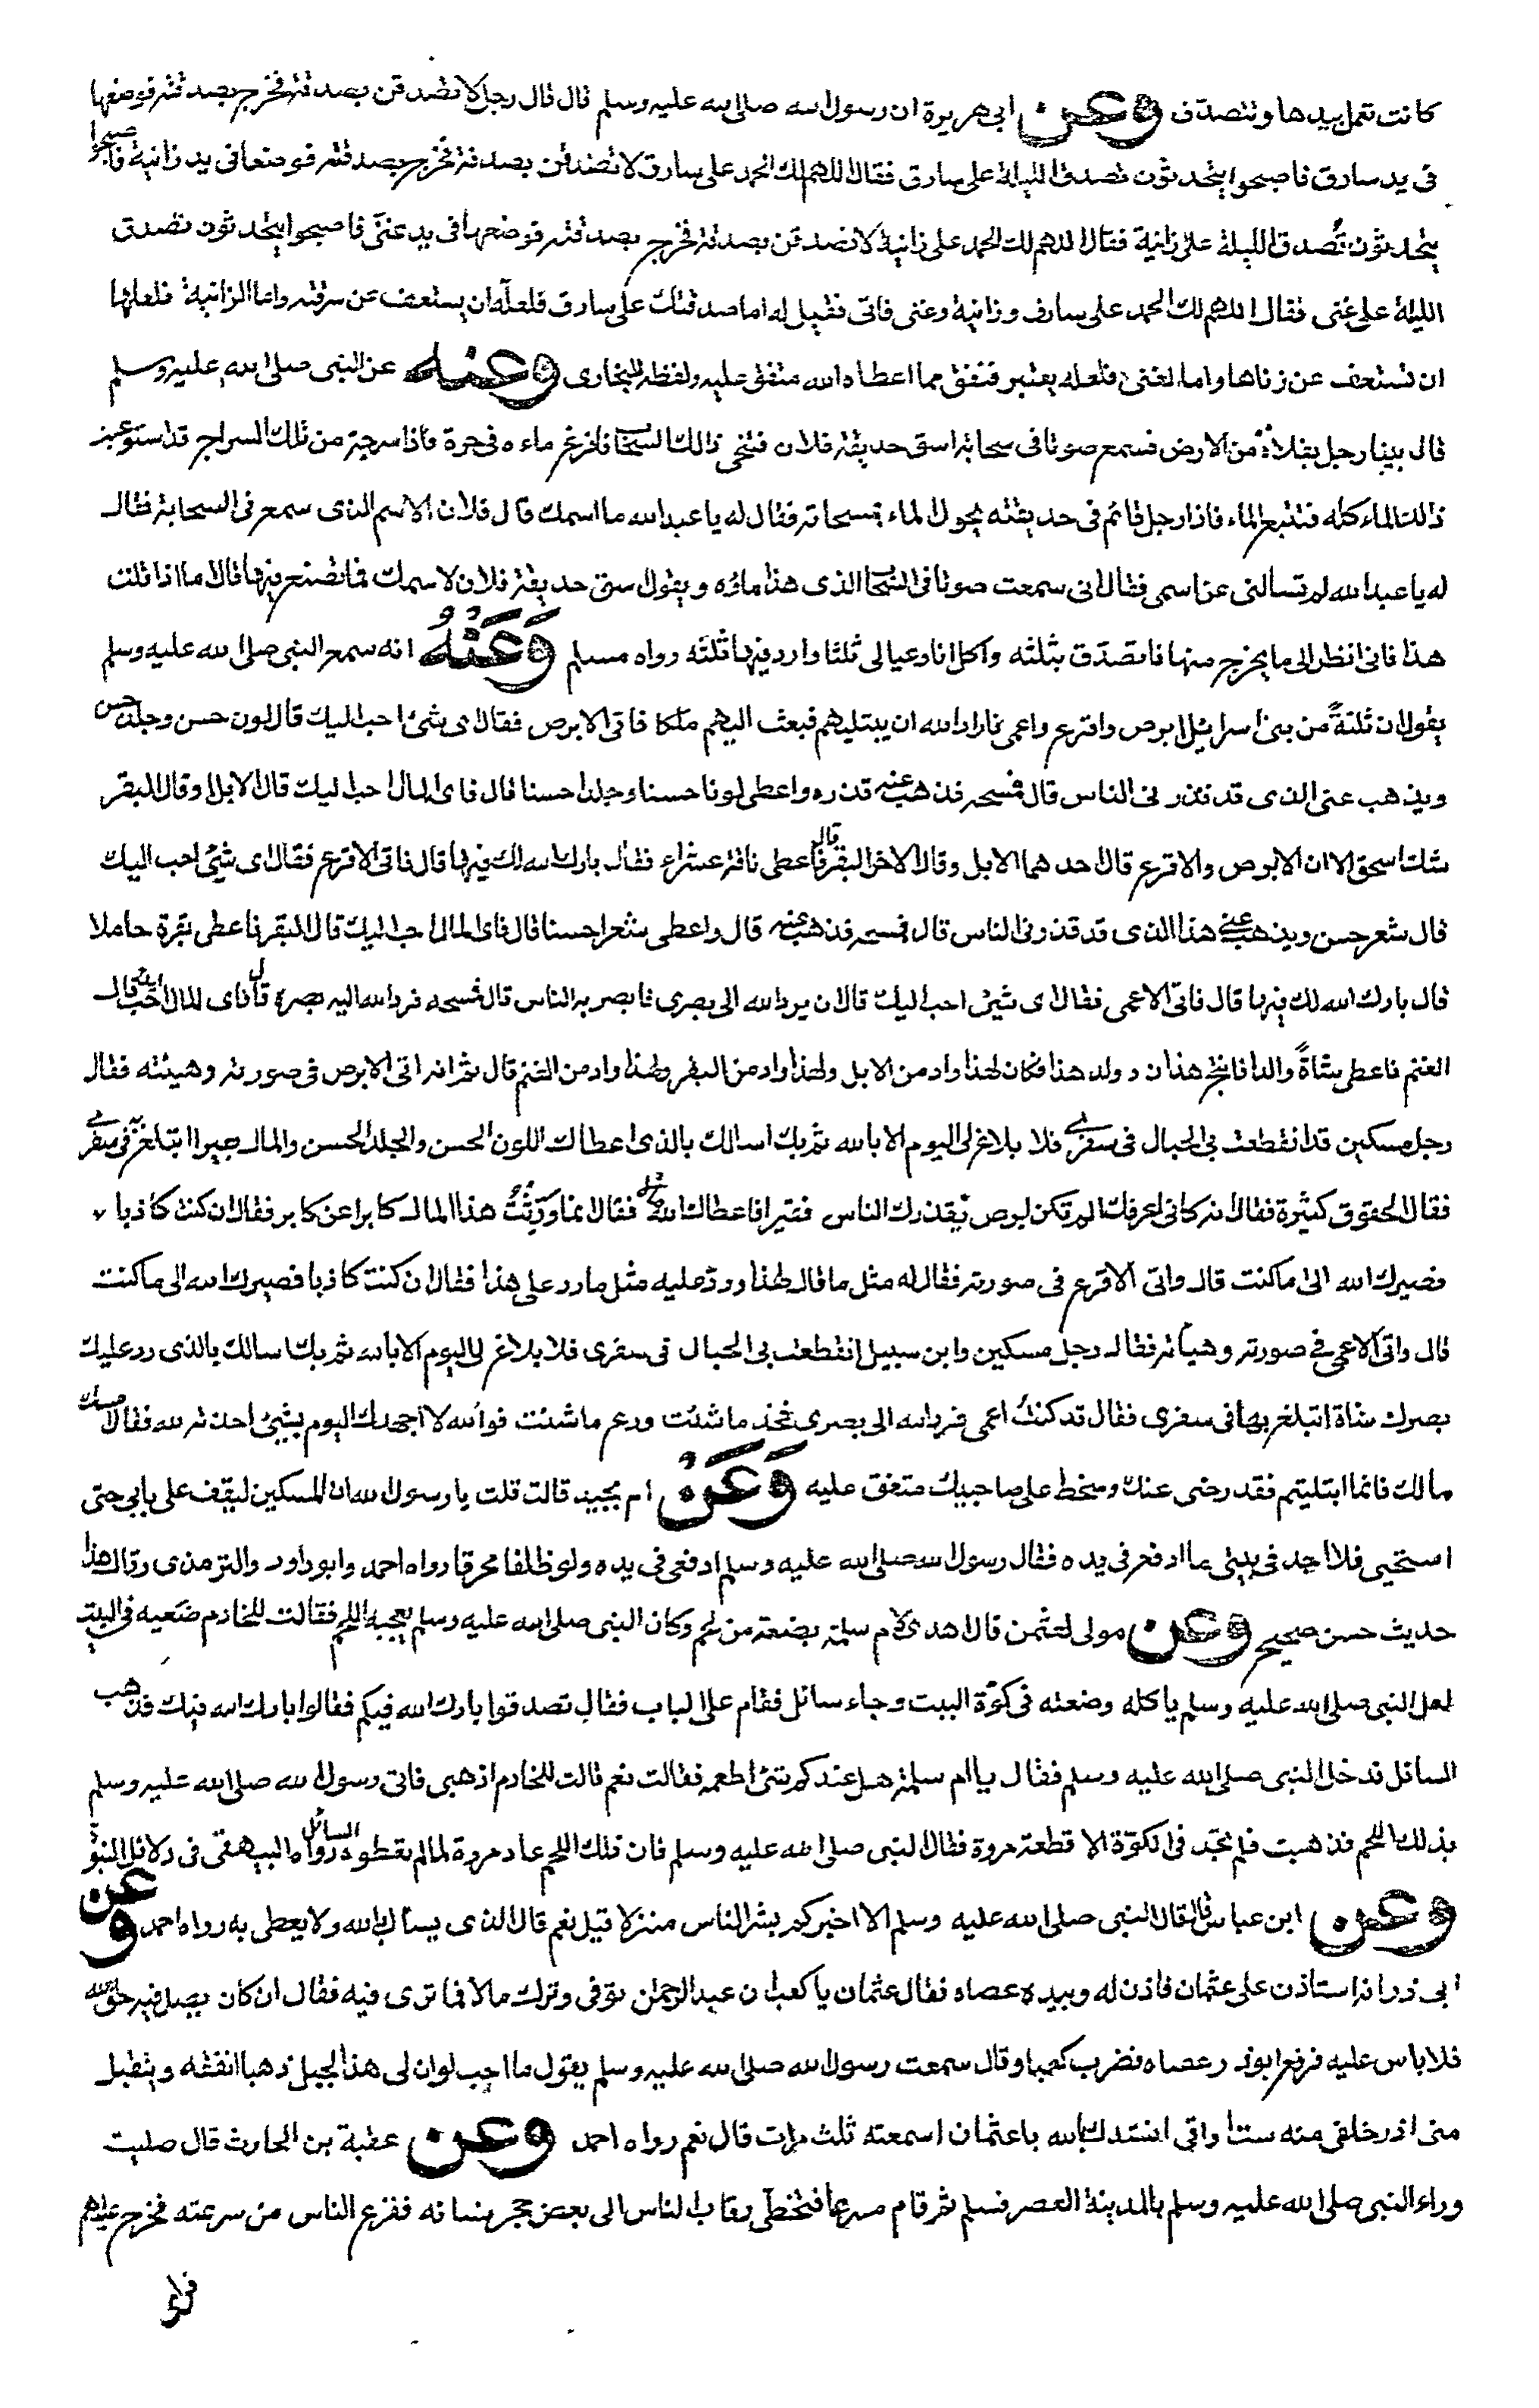 كانت تعمل بيدها وتتصدق وعن ابى هريرة ان رسول الله صلى الله عليه وسلم قال قال رجل لاتصدقن بصدقة فخرج بصدقته فوضعها
فى يد سارق فاصبحوا يتحدثون تصدق الليلة على سارق فقال اللهم لك الحمد على سارق لاتصدقن بصدقة فخرج بصدقته فوضعها فى يد زانية فاصبحوا
يتحدثون تُصدق الليلة على زانية فقال اللهم لك الحمد على زانية لاتصدقن بصدقة فخرج بصدقته فوضعها فى يد غنى فاصبحوا يتحدثون تصدق
الليلة على غنى فقال اللهم لك الحمد على سارق وزانية وغنى فاتى فقيل له اما صدقتك على سارق فلعله ان يستعف عن سرقته واما الزانية فلعلها
ان تستعف عن زناها واما الغنى فلعله يعتبر فينفق مما اعطاه الله متفق عليه ولفظه للبخارى وعنه عن النبى صلى الله عليه وسلم
قال بينا رجل بفلاة من الارض فسمع صوتا فى سحابة اسق حديقة فلان فتنحى ذالك السحاب فافرغ ماءه فى حرة فاذا شرجة من تلك الشراج قد استوعبت
ذالك الماء كله فتتبع الماء فاذا رجل قائم فى حديقته يحول الماء بمسحاته فقال له يا عبد الله ما اسمك قال فلان الاسم الذى سمع فى السحابة فقال
له يا عبد الله لم تسالنى عن اسمى فقال انى سمعت صوتا فى السحاب الذى هذا ماؤه ويقول اسق حديقة فلان لاسمك فما تصنع فيها قال اما اذا قلت
هذا فانى انظر الى ما يخرج منها فاتصدق بثلثه واكل انا وعيالى ثلثا وارد فيها ثلثه رواه مسلم وَعَنْهُ انه سمع النبى صلى الله عليه وسلم
يقول ان ثلثةً من بنى اسرائيل ابرص واقرع واعمى فاراد الله ان يبتليهم فبعث اليهم ملكا فاتى الابرص فقال اى شئ احب اليك قال لون حسن وجلد حسن
ويذهب عنى الذى قد قذرنى الناس قال فمسحه فذهب عنه قذره واعطى لونا حسنا وجلدا حسنا قال فاى المال احب اليك قال الابل او قال البقر
شك اسحق الا ان الابرص والاقرع قال احدهما الابل وقال الاخر البقر قال فاعطى ناقة عشراء فقال بارك الله لك فيها قال فاتى الاقرع فقال اى شئ احب اليك
قال شعر حسن ويذهب عنى هذا الذى قد قذرنى الناس قال فمسحه فذهب عنه قال واعطى شعرا حسنا قال فاى المال احب اليك قال البقر فاعطى بقرة حاملا
قال بارك الله لك فيها قال فاتى الاعمى فقال اى شئ احب اليك قال ان يرد الله الى بصرى فابصر به الناس قال فمسحه فرد الله اليه بصره قال فاى المال احب اليك قال
الغنم فاعطى شاةً والدا فانتج هذان وولد هذا فكان لهذا واد من الابل ولهذا واد من البقر ولهذا واد من الغنم قال ثم انه اتى الابرص فى صورته وهيئته فقال
رجل مسكين قد انقطعت بى الحبال فى سفرى فلا بلاغ لى اليوم الا بالله ثم بك اسالك بالذى اعطاك اللون الحسن والجلد الحسن والمال بعيرا اتبلغ به فى سفرى
فقال الحقوق كثيرة فقال انه كانى اعرفك الم تكن ابرص يقذرك الناس فقيرا فاعطاك الله فقال انما ورثت هذا المال كابرا عن كابر فقال ان كنت كاذبا
فصيرك الله الى ما كنت قال واتى الاقرع فى صورته فقال له مثل ما قال لهذا ورد عليه مثل ما رد على هذا فقال ان كنت كاذبا فصيرك الله الى ما كنت
قال واتى الاعمى فى صورته وهيأته فقال رجل مسكين وابن سبيل انقطعت بى الحبال فى سفرى فلا بلاغ لى اليوم الا بالله ثم بك اسالك بالذى رد عليك
بصرك شاة اتبلغ بها فى سفرى فقال قد كنت اعمى فرد الله الى بصرى فخذ ما شئت ودع ما شئت فوالله لا اجهدك اليوم بشئ اخذته لله فقال امسك
مالك فانما ابتليتم فقد رضى عنك وسخط على صاحبيك متفق عليه وَعَنْ ام بجيد قالت قلت يا رسول الله ان المسكين ليقف على بابى حتى
استحيى فلا اجد فى بيتى ما ادفع فى يده فقال رسول الله صلى الله عليه وسلم ادفعى فى يده ولو ظلفا محرقا رواه احمد وابو داود والترمذى وقال هذا
حديث حسن صحيح وعن مولى لعثمن قال اهدى لام سلمة بضعة من لحم وكان النبى صلى الله عليه وسلم يعجبه اللحم فقالت للخادم ضعيه فى البيت
لعل النبى صلى الله عليه وسلم ياكله وضعته فى كوّة البيت وجاء سائل فقام على الباب فقال تصدقوا بارك الله فيكم فقالوا بارك الله فيك فذهب
السائل فدخل النبى صلى الله عليه وسلم فقال يا ام سلمة هل عندكم شئ اطعمه فقالت نعم قالت للخادم اذهبى فاتى رسول الله صلى الله عليه وسلم
بذلك اللحم فذهبت فلم تجد فى الكوّة الا قطعة مروة فقال النبى صلى الله عليه وسلم فان ذلك اللحم عاد مروة لما لم تعطوه السائل رواه البيهقى فى دلائل النبوة
وعن ابن عباس قال قال النبى صلى الله عليه وسلم الا اخبركم بشر الناس منزلا قيل نعم قال الذى يسأل بالله ولا يعطى به رواه احمد وعن
ابى ذر انه استاذن على عثمان فاذن له وبيده عصاه فقال عثمان يا كعب ان عبد الرحمان توفى وترك مالا فما ترى فيه فقال ان كان يصل فيه حق الله
فلا باس عليه فرفع ابو ذر عصاه فضرب كعبا وقال سمعت رسول الله صلى الله عليه وسلم يقول ما احب لو ان لى هذا الجبل ذهبا انفقه ويتقبل
منى اذر خلفى منه ست اواقى انشدك بالله يا عثمان اسمعته ثلث مرات قال نعم رواه احمد وعن عقبة بن الحارث قال صليت
وراء النبى صلى الله عليه وسلم بالمدينة العصر فسلم ثم قام مسرعا فتخطى رقاب الناس الى بعض حجر نسائه ففزع الناس من سرعته فخرج عليهم